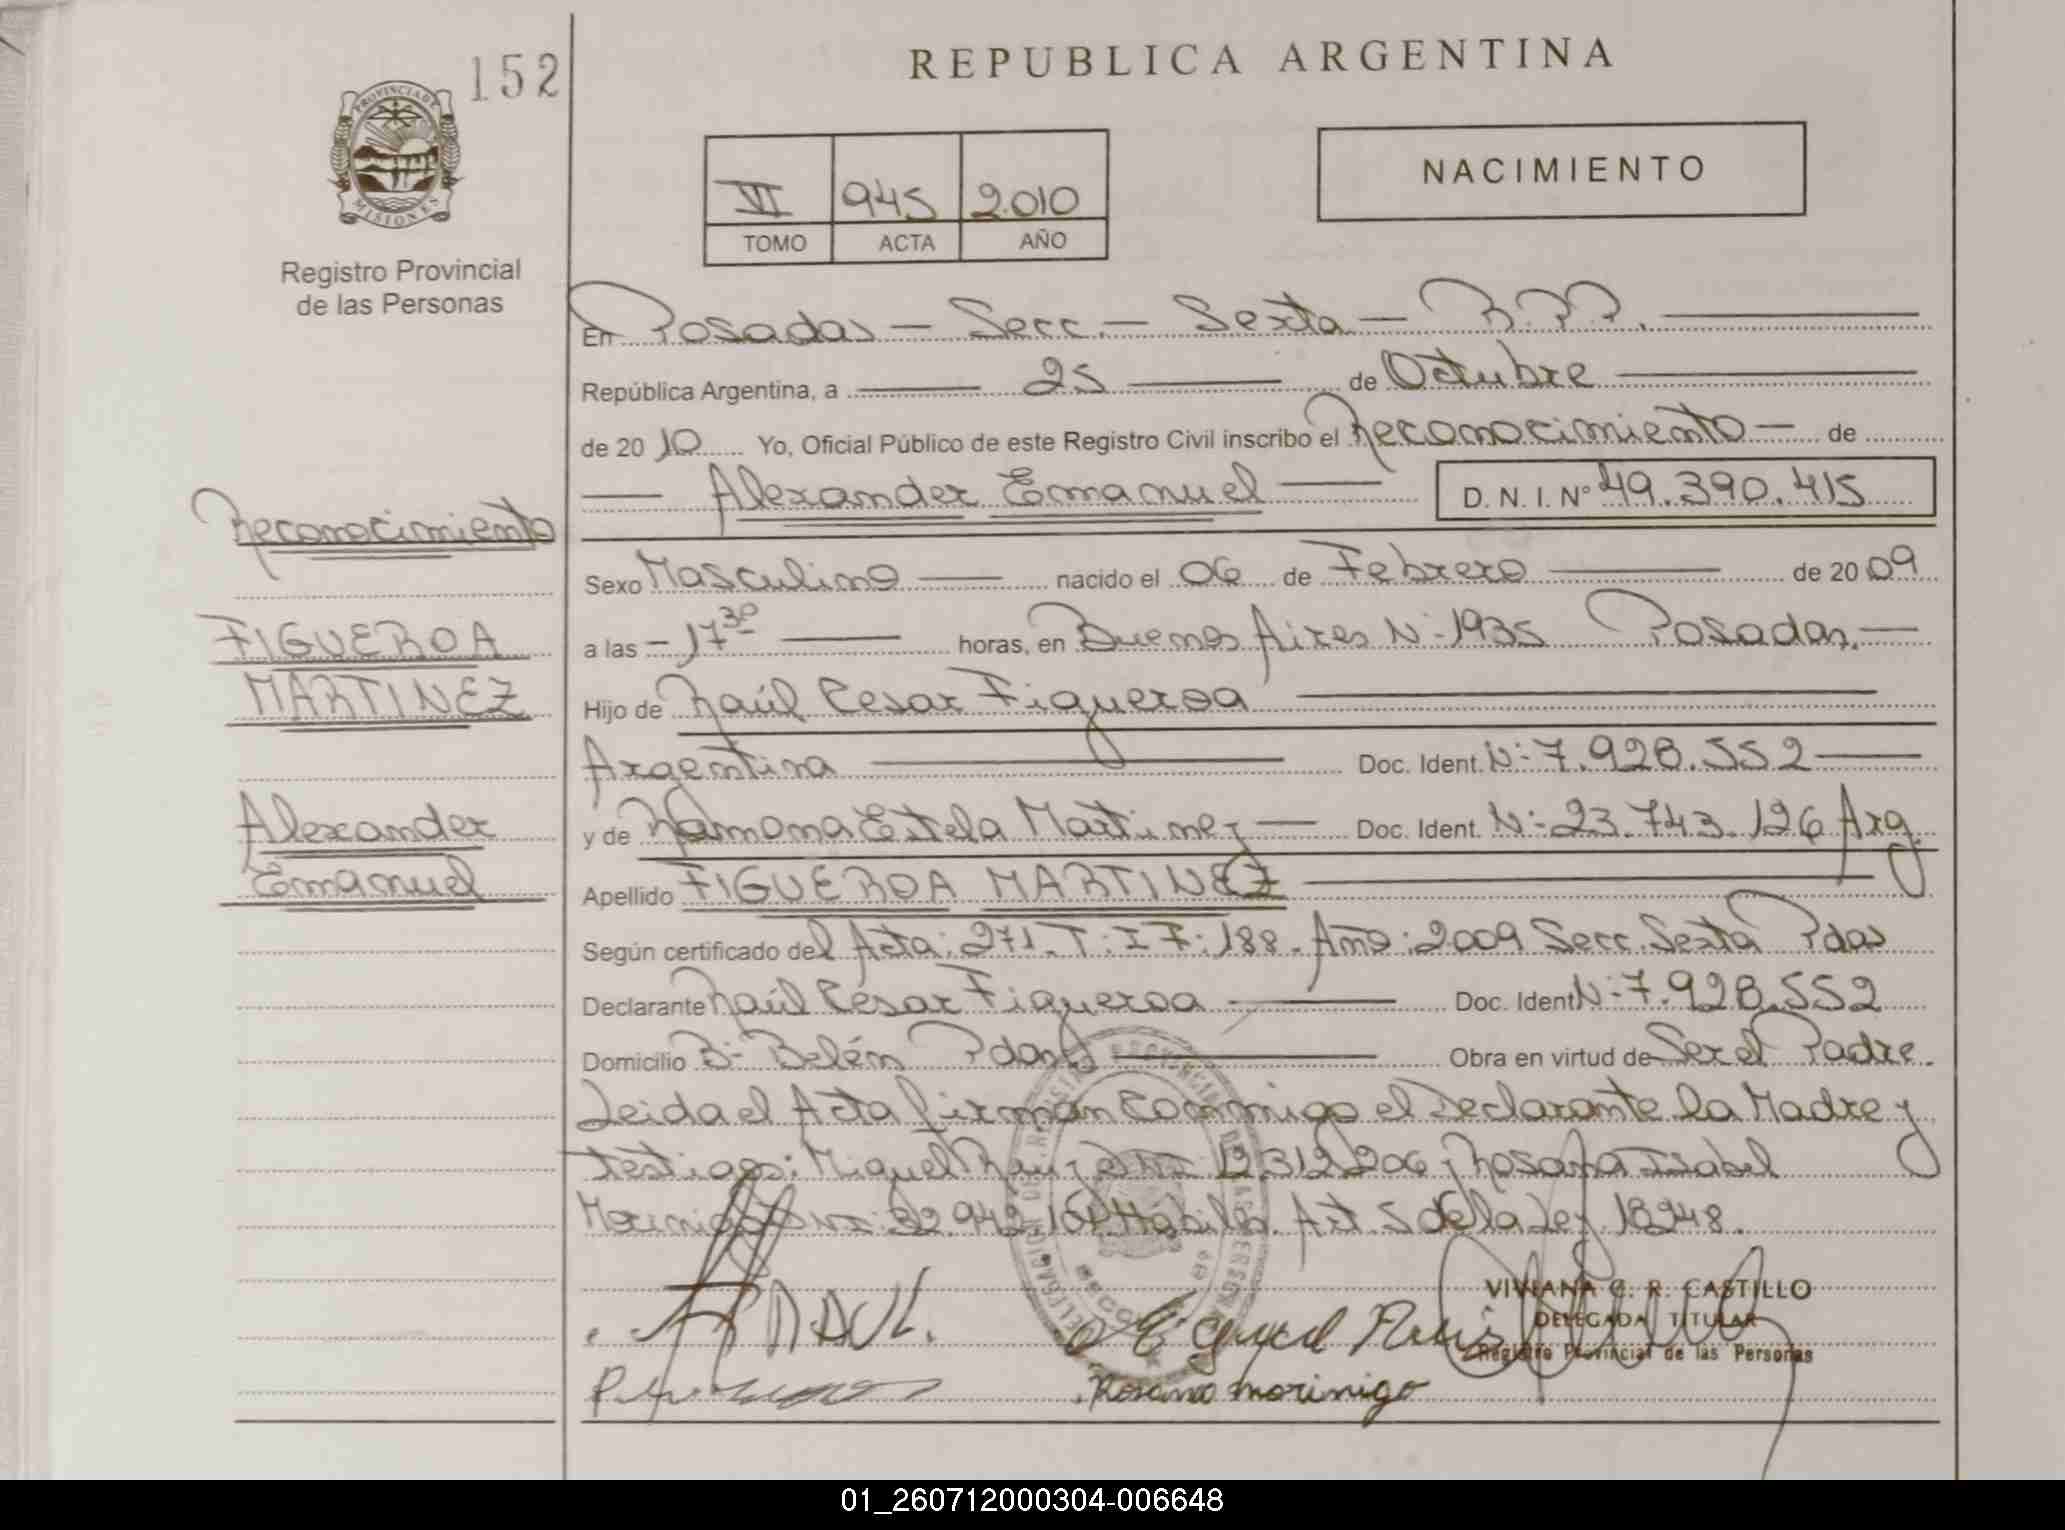 152
REPUBLICA ARGENTINA
PROVINCIA DE MISIONES
Registro Provincial
de las Personas
VI 945 2010
TOMO ACTA AÑO
NACIMIENTO
En Posadas – Secc. – Sexta – R.P.P.
República Argentina, a 25 de Octubre
de 2010 Yo, Oficial Público de este Registro Civil inscribo el Reconocimiento – de
Alexander Emanuel D. N. I. Nº 49.390.415
Reconocimiento
Sexo Masculino nacido el 06 de Febrero de 2009
FIGUEROA
a las – 17 30 horas, en Buenos Aires Nº 1935 Posadas. –
MARTINEZ
Hijo de Raúl Cesar Figueroa
Argentina Doc. Ident. Nº 7.928.552
Alexander
y de Ramona Estela Martinez – Doc. Ident. Nº 23.743.126 Arg.
Emanuel
Apellido FIGUEROA MARTINEZ
Según certificado del Acta: 271. T: I F: 188. Año: 2009 Secc. Sexta Pdas
Declarante Raúl César Figueroa Doc. Ident Nº 7.928.552
Domicilio Bº Belén Pdas Obra en virtud de Ser el Padre.
Leida el Acta firman conmigo el Declarante la Madre y
testigos: Miguel Ruiz 12.312.206 y Rosana Isabel
Morinigo 32.942. Hábiles. Art. 5 de la Ley 18248.
VIVIANA C. R. CASTILLO
DELEGADA TITULAR
Registro Provincial de las Personas
RAUL.
Miguel Ruis
Rosana morinigo
01_260712000304-006648